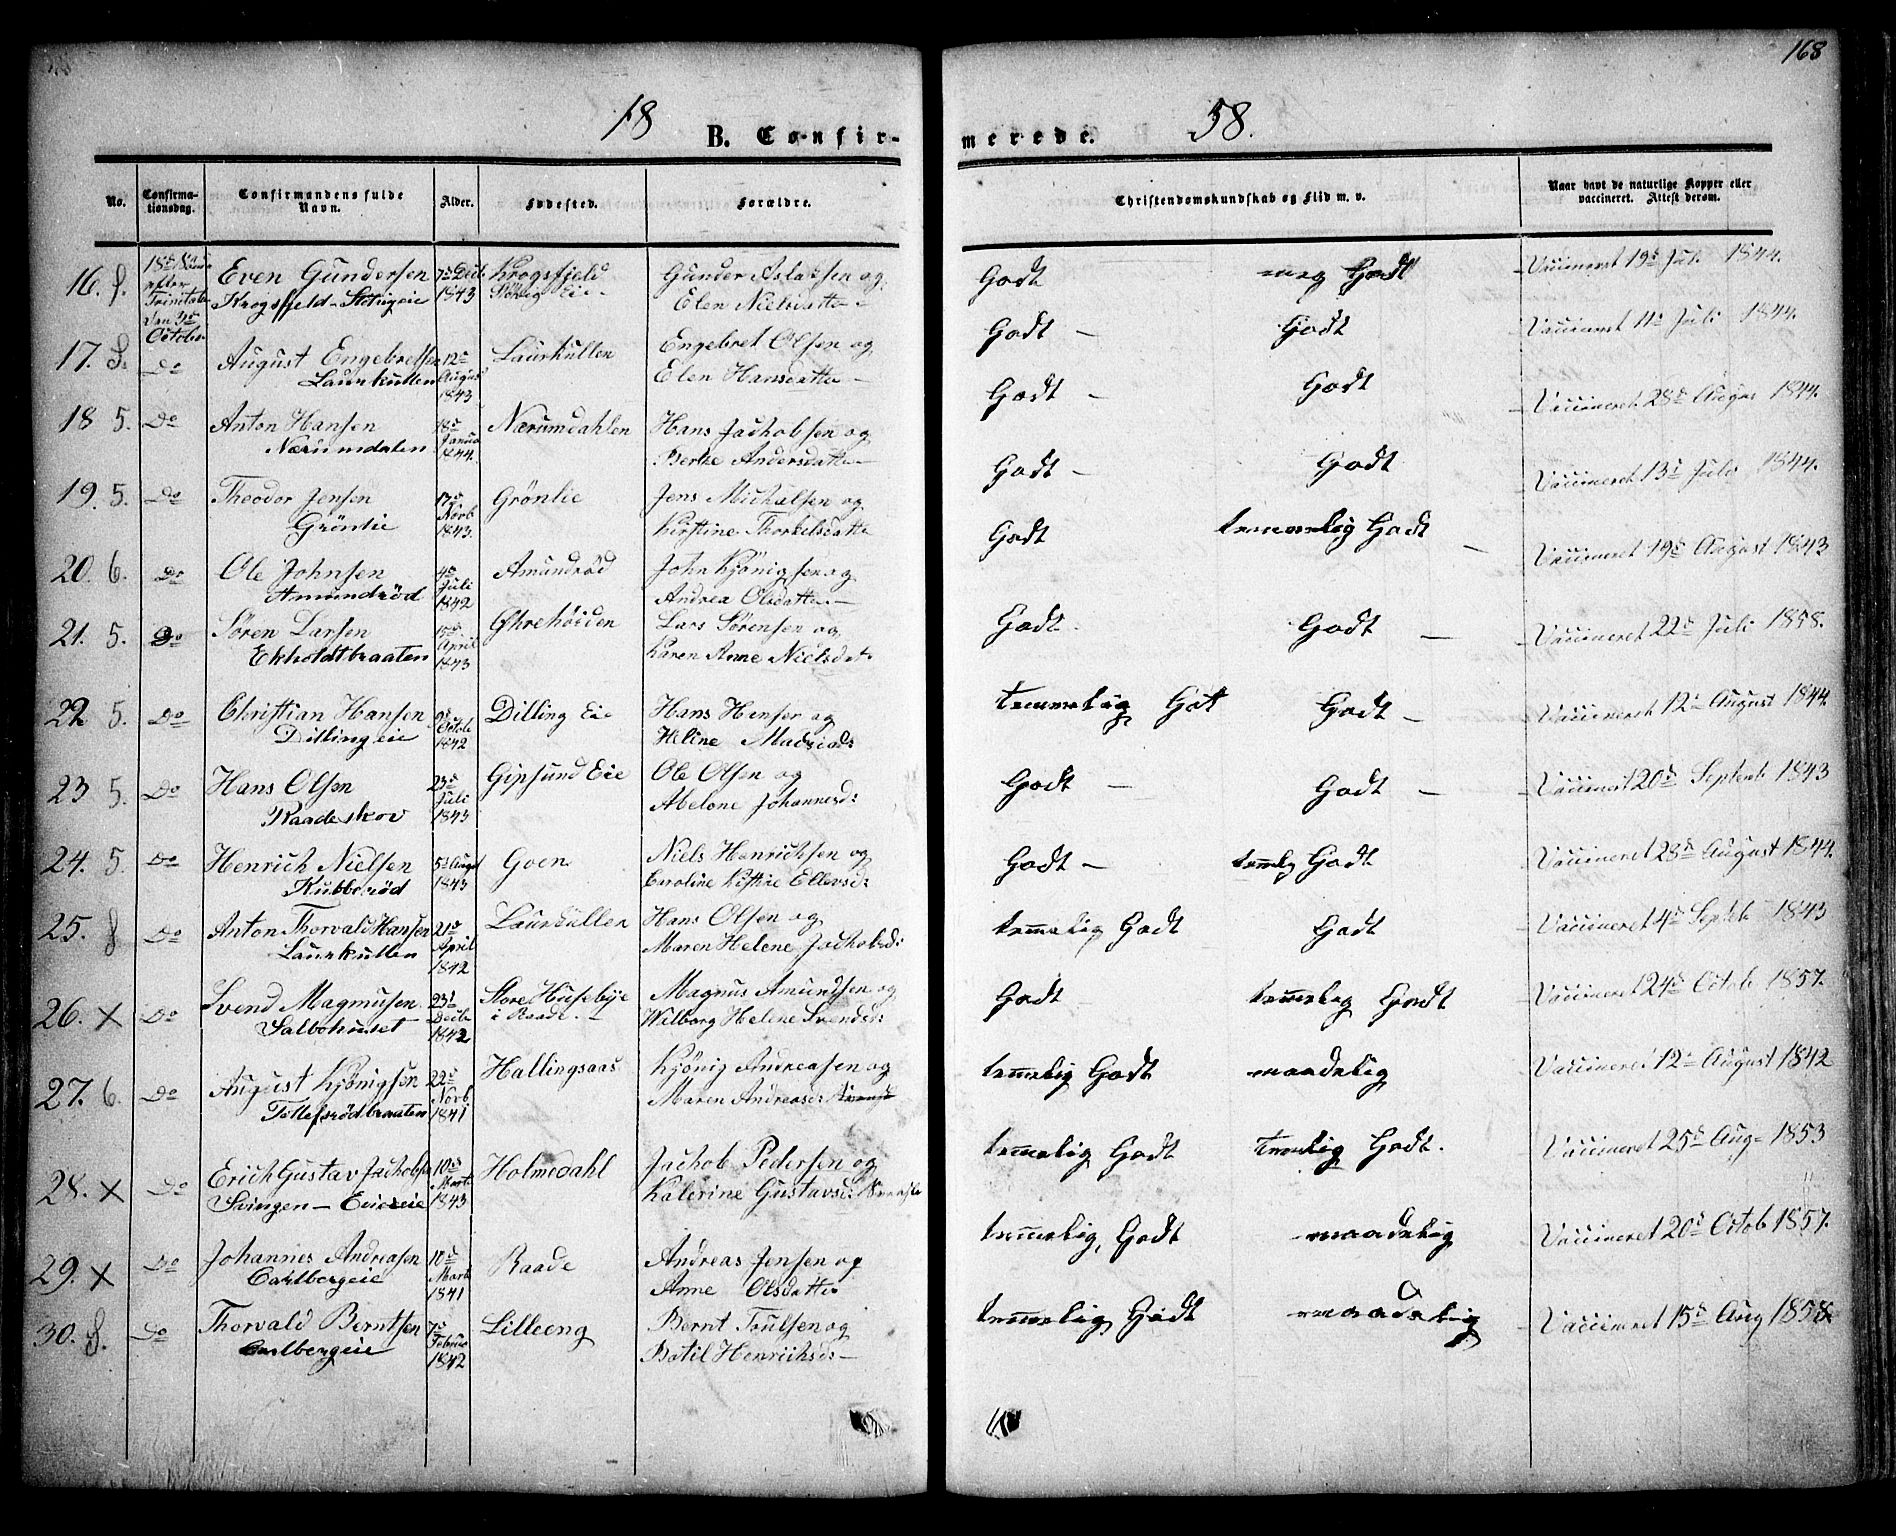 168
18 58.
B. Confir- merede.
No. Confirmationsdag. Confirmandens fulde Navn. Alder. Fødested. Forældre. Christendomskundskab og Flid m. v. Naar havt de naturlige Kopper eller vaccineret. Attest derom.
16. Even Gundersen 7de Decb. Krogsfjeld Gunder Aslaksen og Godt meg Godt Vaccineret 19de Juli 1844.
efter Trinitatis Krogsfjeld-Stötvig eie 1843 Eie Elen Nielsdatter
den 3de October
17. Do August Engebretsen 12te Laurkullen Engebret Olsen og Godt Godt Vaccineret 11te Juli 1844.
Laurkullen August 1843 Elen Hansdatter
18 5. Do Anton Hansen 18de Nærumdahlen Hans Jachobsen og Godt Godt Vaccineret 28de August 1844.
Nærumdalen Janua 1844. Berte Andersdatter
19. 5. Do Theodor Jensen 17de Grönlie Jens Michelsen og Godt Godt Vaccineret 13de Juli 1844.
Grönlie Novb 1843. Kirstine Thorkelsdatter
20. 6. Do Ole Johnsen 4de Amundröd John Kjönigsen og Godt temmelig Godt Vaccineret 19de August 1843
Amundröd Juli 1842 Andrea Olsdatter
21. 5. Do Sören Larsen 15de Öhrehöiden Lars Sörensen og Godt Godt Vaccineret 22de Juli 1858.
Ekholdtbraaten April 1843 Karen Anne Nielsdat:
22 5. Do Christian Hansen 9de Dilling Eie Hans Hensen og temmelig Got Godt Vaccineret 12te August 1844.
Dilling eie Octob 1842 Heline Madsdat:
23 5. Do Hans Olsen 23de Gipsund Eie Ole Olsen og Godt Godt Vaccineret 20de Septemb 1843
Raadeskov Juli 1843 Abelone Johannesd:
24. 5 Do Henrich Nielsen 5te August Goen Niels Henrichsen og Godt temlig Godt Vaccineret 23de August 1844.
Kubberöd 1843 Caroline Kistine Ellevsd:
25. Do Anton Thorvald Hansen 21de Laurkullen Hans Olsen og temmelig Godt Godt Vaccineret 4de Septb 1843
Laurkullen April 1842 Maren Helene Jachobsd:
26. X Do Svend Magnusen 23de Store Huseby Magnus Amundsen og Godt temmelig Godt Vaccineret 24de Octob 1857.
Saltbohuset Decbr 1842 i Raade. Wilborg Helene Svendsd:
27. 6. Do August Kjönigsen 22de Hallingsaas Kjönig Andreasen og temmelig Godt maadelig Vaccineret 12te August 1842
Tollefsrödbraaten Novb 1841 Maren Andreasd:
28. X Do Erich Gustav Jachobsen 10de Holmedahl Jachob Pedersen og temmelig Godt temlig Godt. Vaccineret 25de Aug 1853
Svingen- Marts 1843 Katerine Gustavsd:
29. X Do Johannes Andreasen 10de Raade Andreas Jensen og temmelig Godt maadelig Vaccineret 20de Octob 1857.
Carlbergeie Marts 1841 Anne Olsdatter
30. Do Thorvald Berntsen 7de Lilleeng Bernt Trulsen og temmelig Godt maadelig Vaccineret 15de Aug 1858
Carlbergeie Februar 1842 Botil Henrichsd: